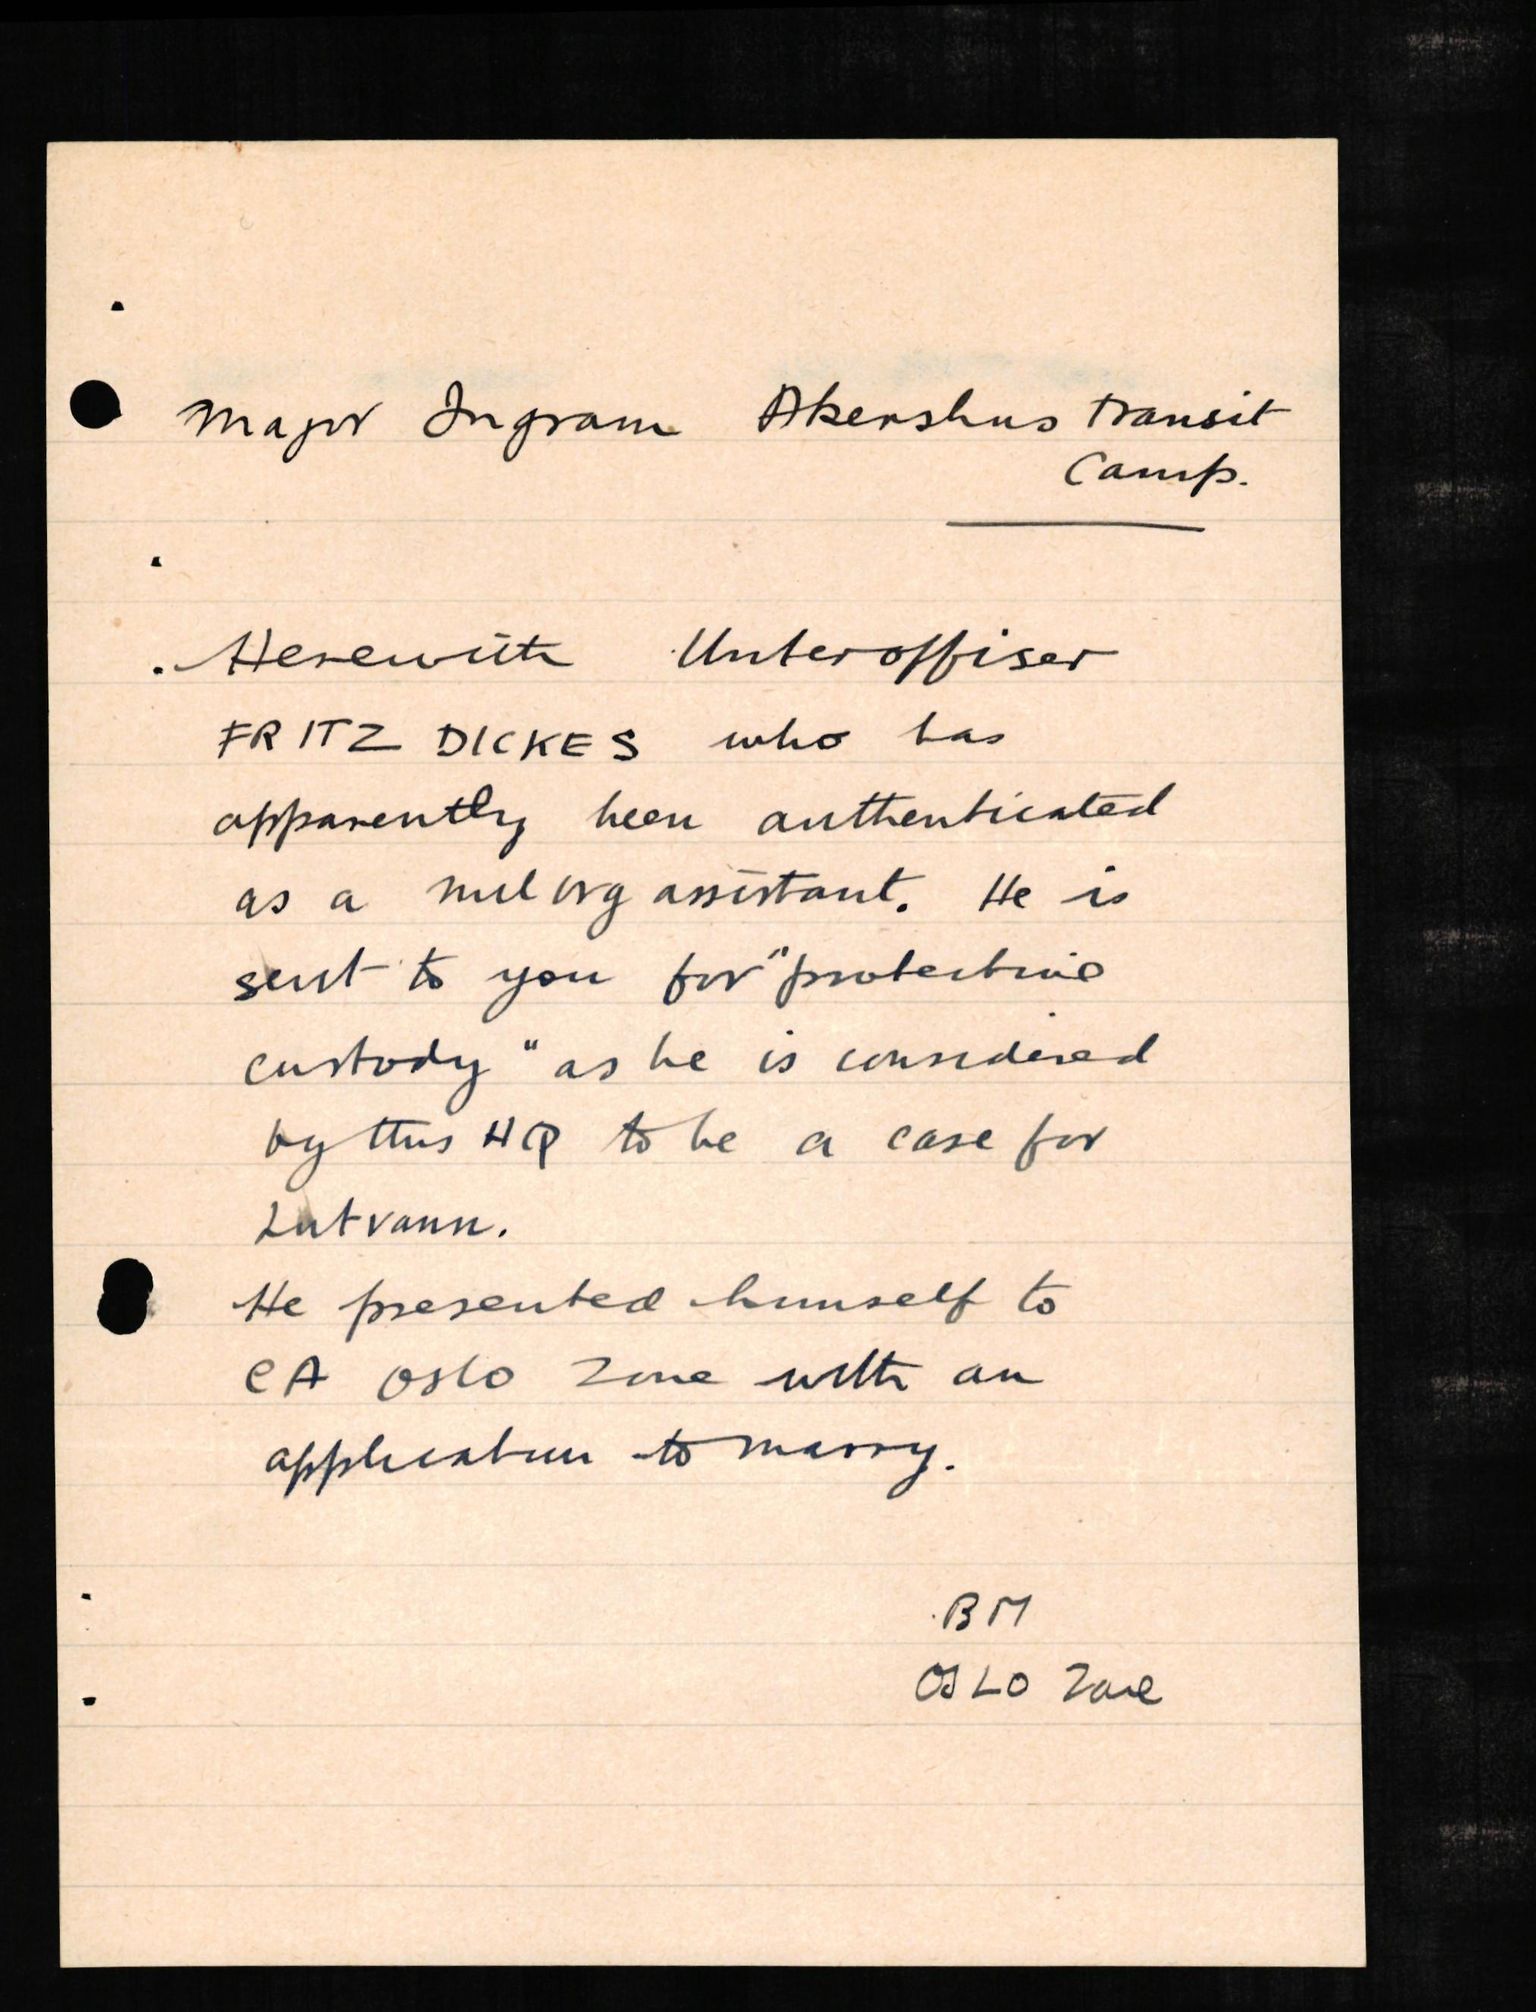 Major Ingram Akershus transit
Camp.
Herewith Unteroffiser
FRITZ DICKES who has
apparently been authenticated
as a milorg assistant. He is
sent to you for "protective
custody" as he is considered
by this HQ to be a case for
Lutvann.
He presented himself to
CA Oslo Zone with an
application to marry.
BM
OSLO Zone